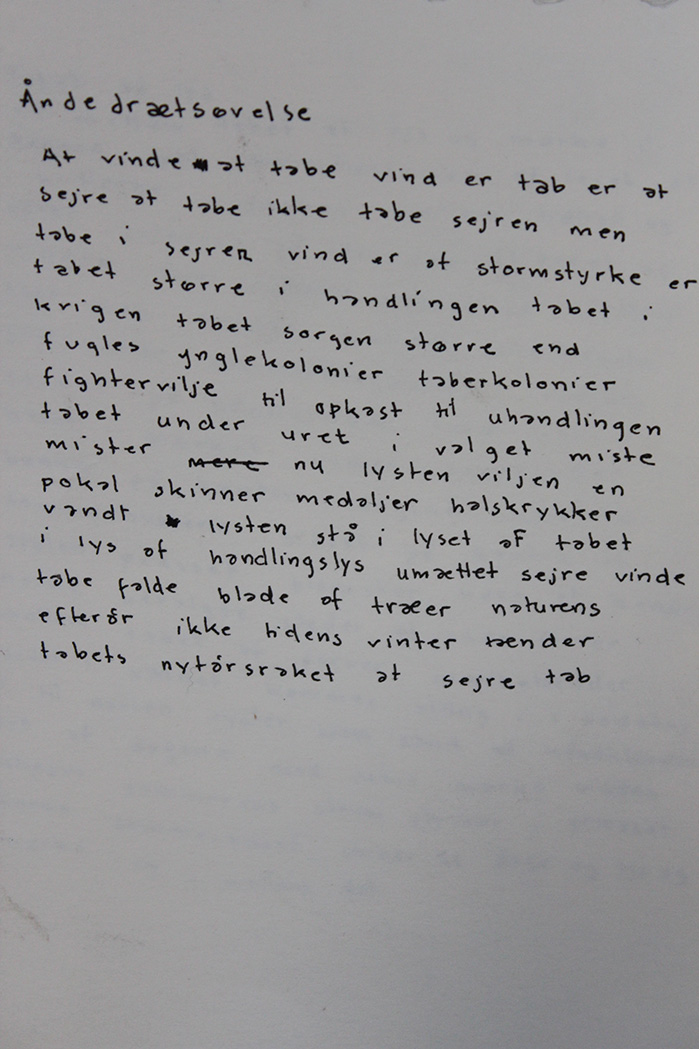 Åndedrætsøvelse
At vinde at tabe vind er tab er at
sejre at tabe ikke tabe sejren men
tabe i sejren vind er af stormstyrke er
tabet større i handlingen tabet i
krigen tabet sorgen større end
fugles ynglekolonier taberkolonier
fightervilje til opkast til uhandlingen
tabet under uret i valget miste
mister mere nu lysten viljen en
pokal skinner medaljer halskrykker
vandt lysten stå i lyset af tabet
i lys af handlingslys umættet sejre vinde
tabe falde blade af træer naturens
efterår ikke tidens vinter tænder
tabets nytårsraket at sejre tab